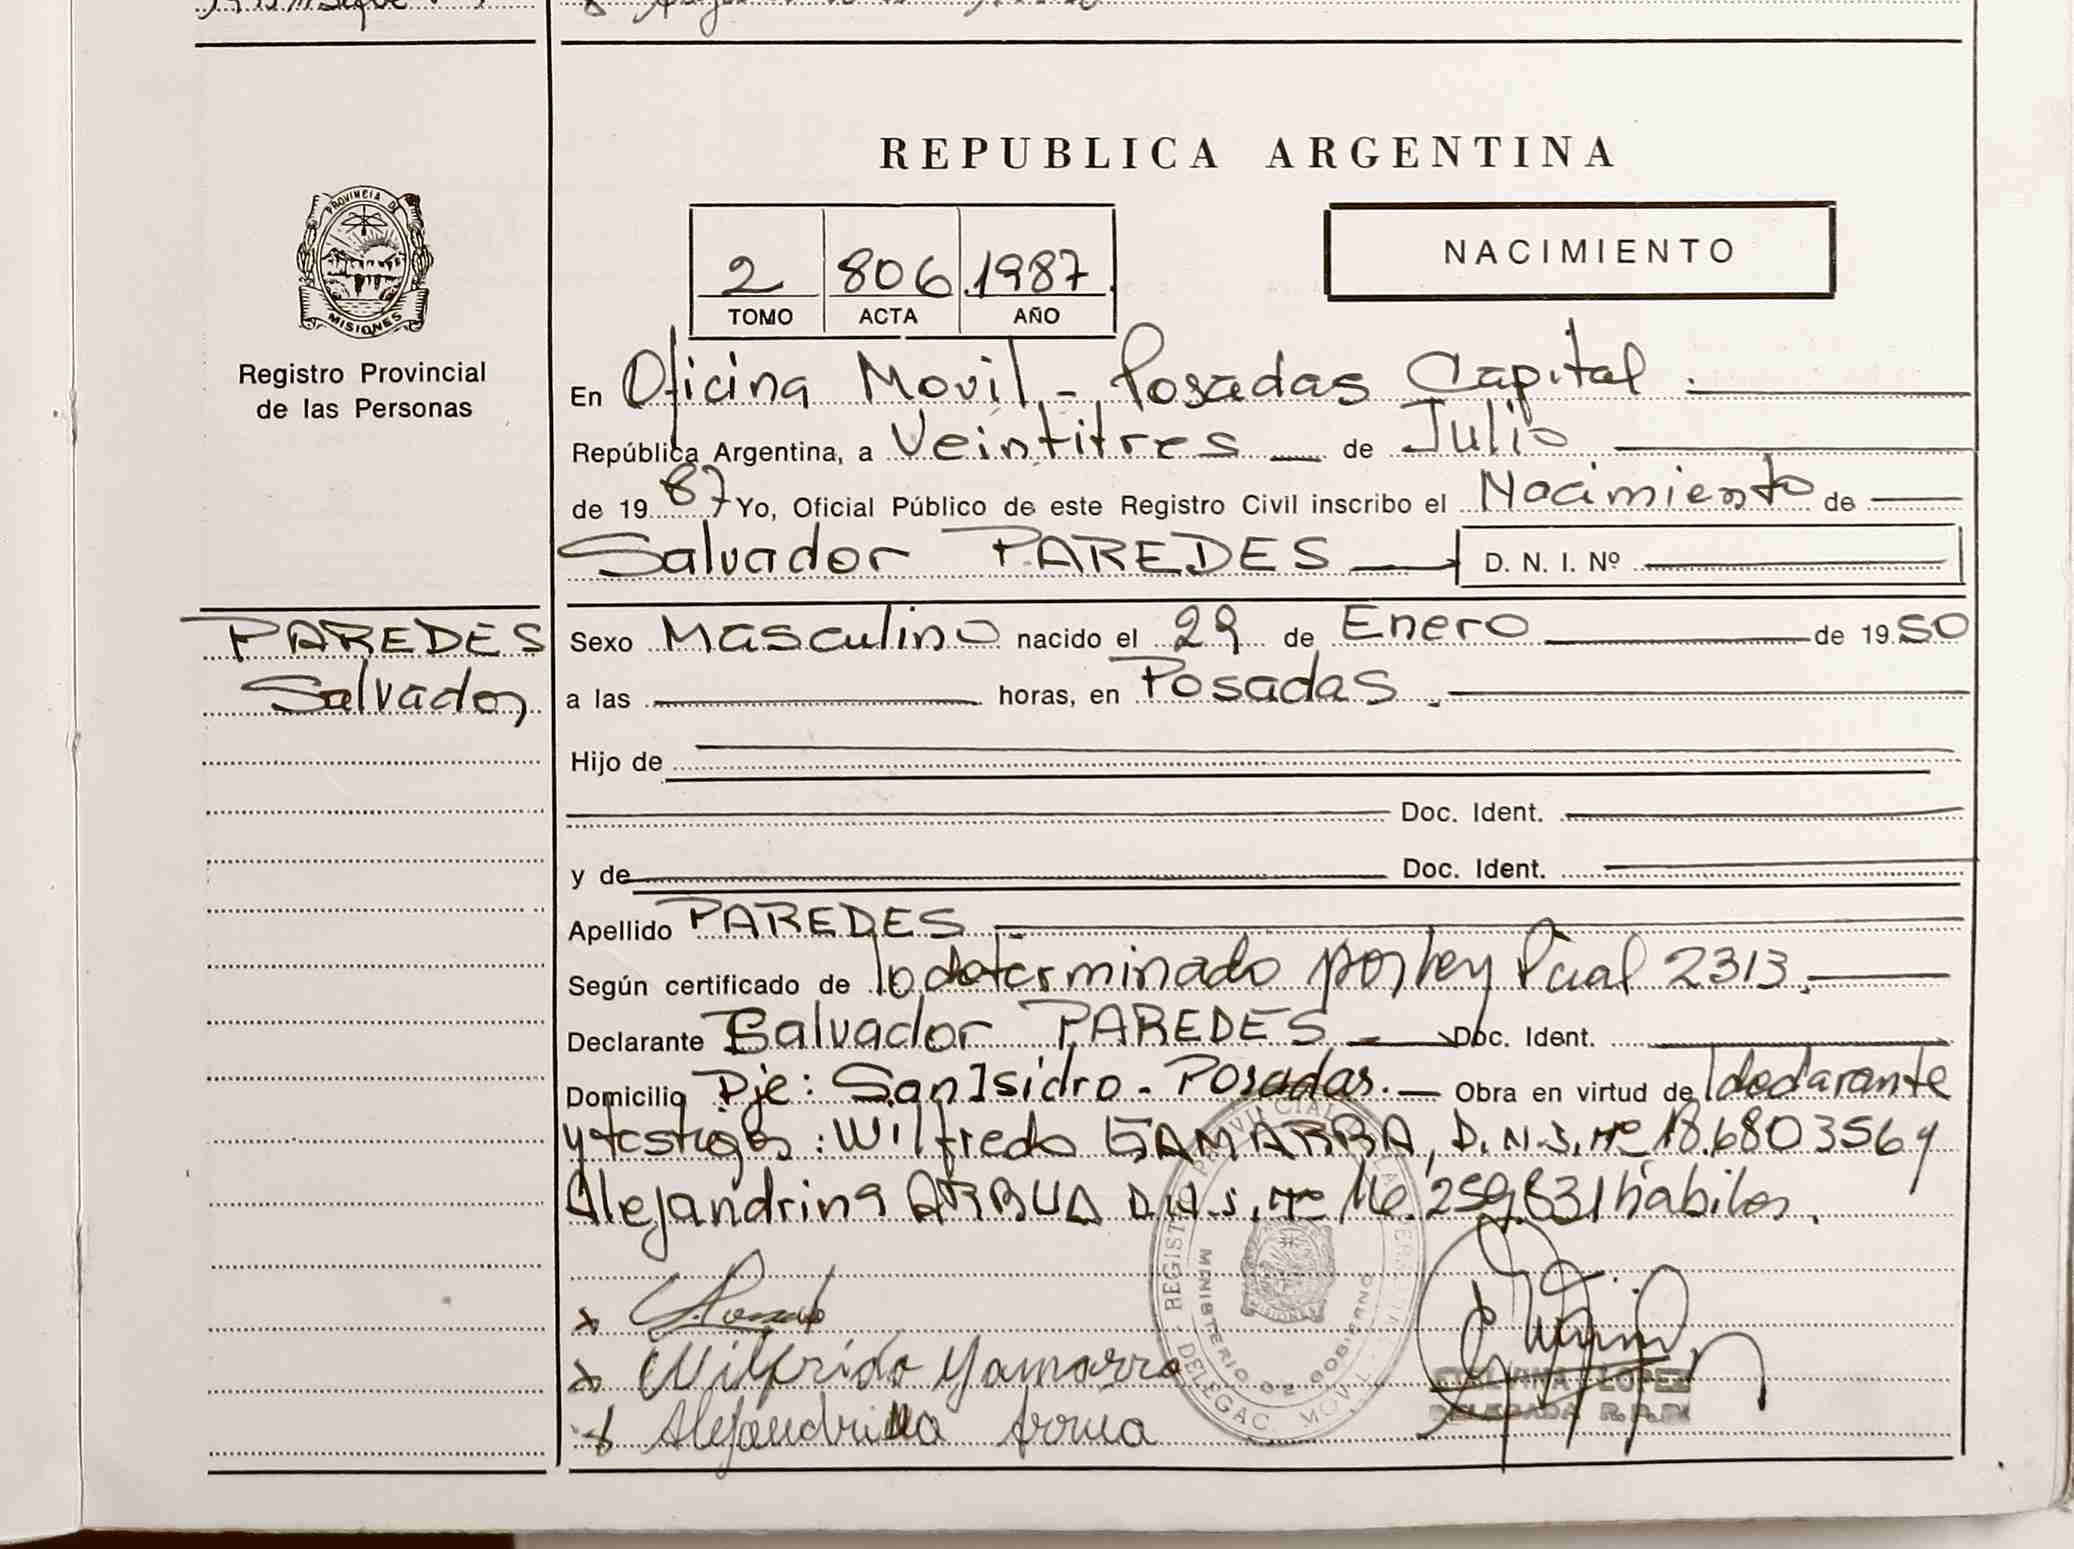 REPUBLICA ARGENTINA
PROVINCIA DE
MISIONES
Registro Provincial
de las Personas
2 806 1987
TOMO ACTA AÑO
NACIMIENTO
En Oficina Movil - Posadas Capital.
República Argentina, a Veintitres de Julio
de 1987 Yo, Oficial Público de este Registro Civil inscribo el Nacimiento de
Salvador PAREDES D. N. I. Nº
PAREDES
Salvador
Sexo Masculino nacido el 29 de Enero de 1950
a las horas, en Posadas.
Hijo de
Doc. Ident.
y de Doc. Ident.
Apellido PAREDES
Según certificado de lo determinado por ley Pcial 2313.
Declarante Salvador PAREDES Doc. Ident.
Domicilio Pje: San Isidro - Posadas. Obra en virtud de l declarante
y testigos: Wilfredo GAMARRA, D.N.I. Nº 18.680356 y
Alejandrina ARRUA D.N.I. Nº habiles.
Wilfrido Gamarra
Alejandrina Arrua
MINISTERIO DE GOBIERNO
DELEGAC. MOVIL
LOPEZ
DELEGADA R.P.P.